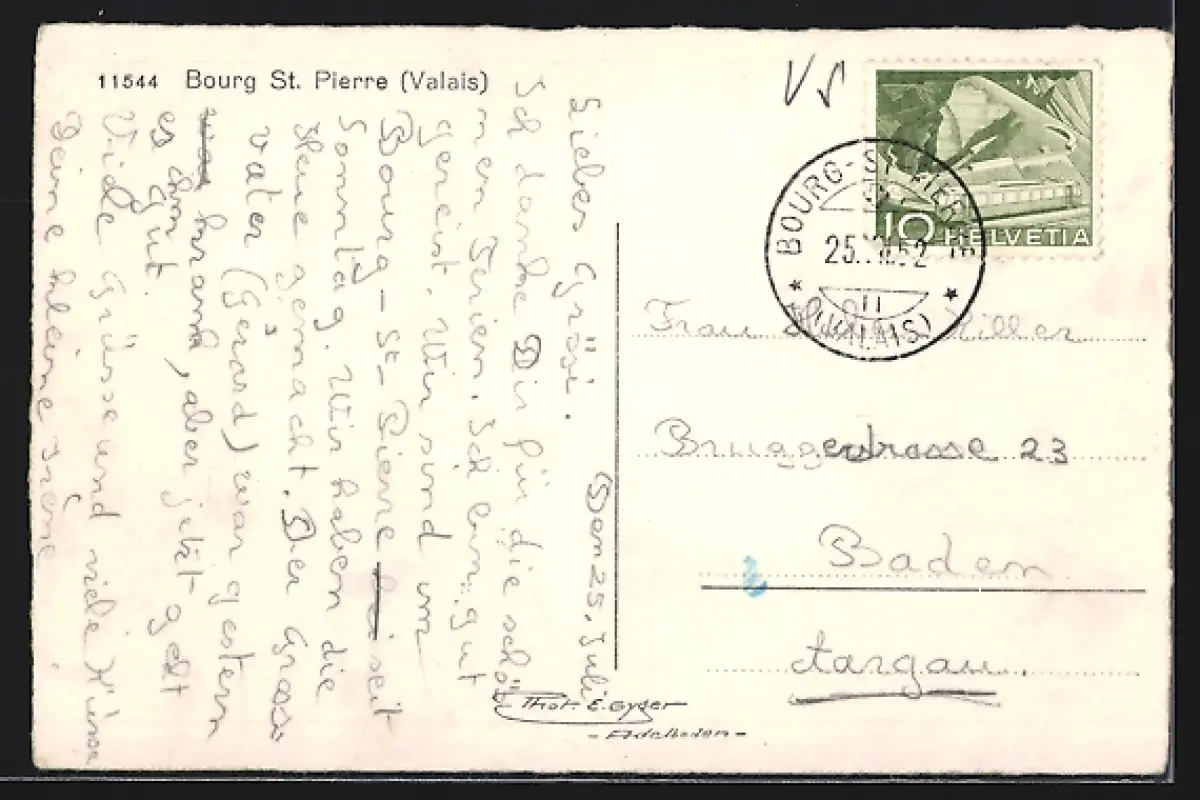 11544 Bourg St. Pierre (Valais)
Liebes Grösi. Den 25. Juli
Ich danke Dir für die schö
nen Ferien. Ich bin gut
gereist. Wir sind im
Bourg-St-Pierre bei seit
Sonntag. Wir haben die
Reise gemacht. Der Gross
vater (Gérard) war gestern
war krank, aber jetzt geht
es ihm gut.
Viele Grüsse und viele Küsse
Deine kleine Irène.
VS
10 HELVETIA
BOURG-ST-PIERRE
25. 52
11
(VALAIS)
Frau Miller
Bruggerstrasse 23
Baden
Aargau.
Phot. E. Gyger
- Adelboden -